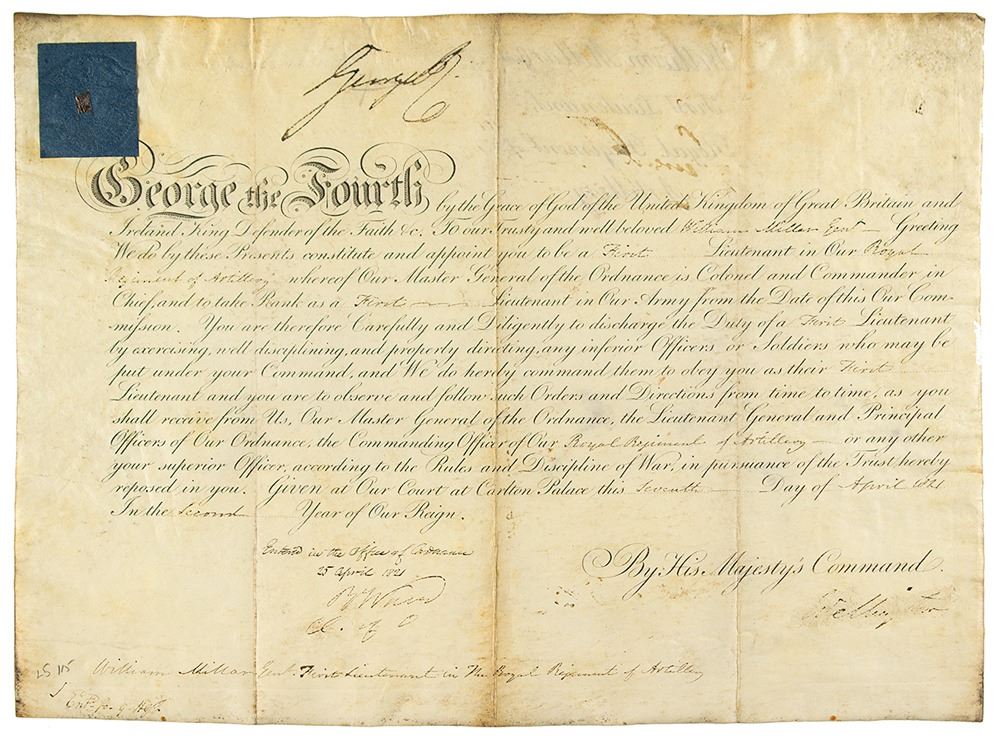 George R
George the Fourth by the Grace of God of the United Kingdom of Great Britain and
Ireland King Defender of the Faith &c. To our trusty and well beloved William Millar Gent Greeting
We do by these Presents constitute and appoint you to be a First Lieutenant in Our Royal
Regiment of Artillery whereof Our Master General of the Ordnance is Colonel and Commander in
Chief, and to take Rank as a First Lieutenant in Our Army from the Date of this Our Com-
mission. You are therefore Carefully and Diligently to discharge the Duty of a First Lieutenant
by exercising, well disciplining, and properly directing, any inferior Officers or Soldiers who may be
put under your Command, and We do hereby command them to obey you as their First
Lieutenant and you are to observe and follow such Orders and Directions from time to time, as you
shall receive from Us, Our Master General of the Ordnance, the Lieutenant General and Principal
Officers of Our Ordnance, the Commanding Officer of Our Royal Regiment of Artillery or any other
your superior Officer, according to the Rules and Discipline of War, in pursuance of the Trust hereby
reposed in you. Given at Our Court at Carlton Palace this Seventh Day of April 1821
In the Second Year of Our Reign.
Entered in the Office of Ordnance
25 April 1821
C. of O
By His Majesty's Command.
William Millar Gent. First Lieutenant in The Royal Regiment of Artillery